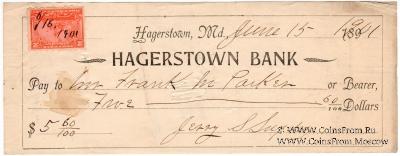 6/16, 1901
Hagerstown, Md. June 15 1901 189
HAGERSTOWN BANK
Pay to Frank M Parker or Bearer,
Five 60/100 Dollars
$ 5 60/100 Jerry S
www.CoinsFrom.Ru
www.CoinsFrom.Com